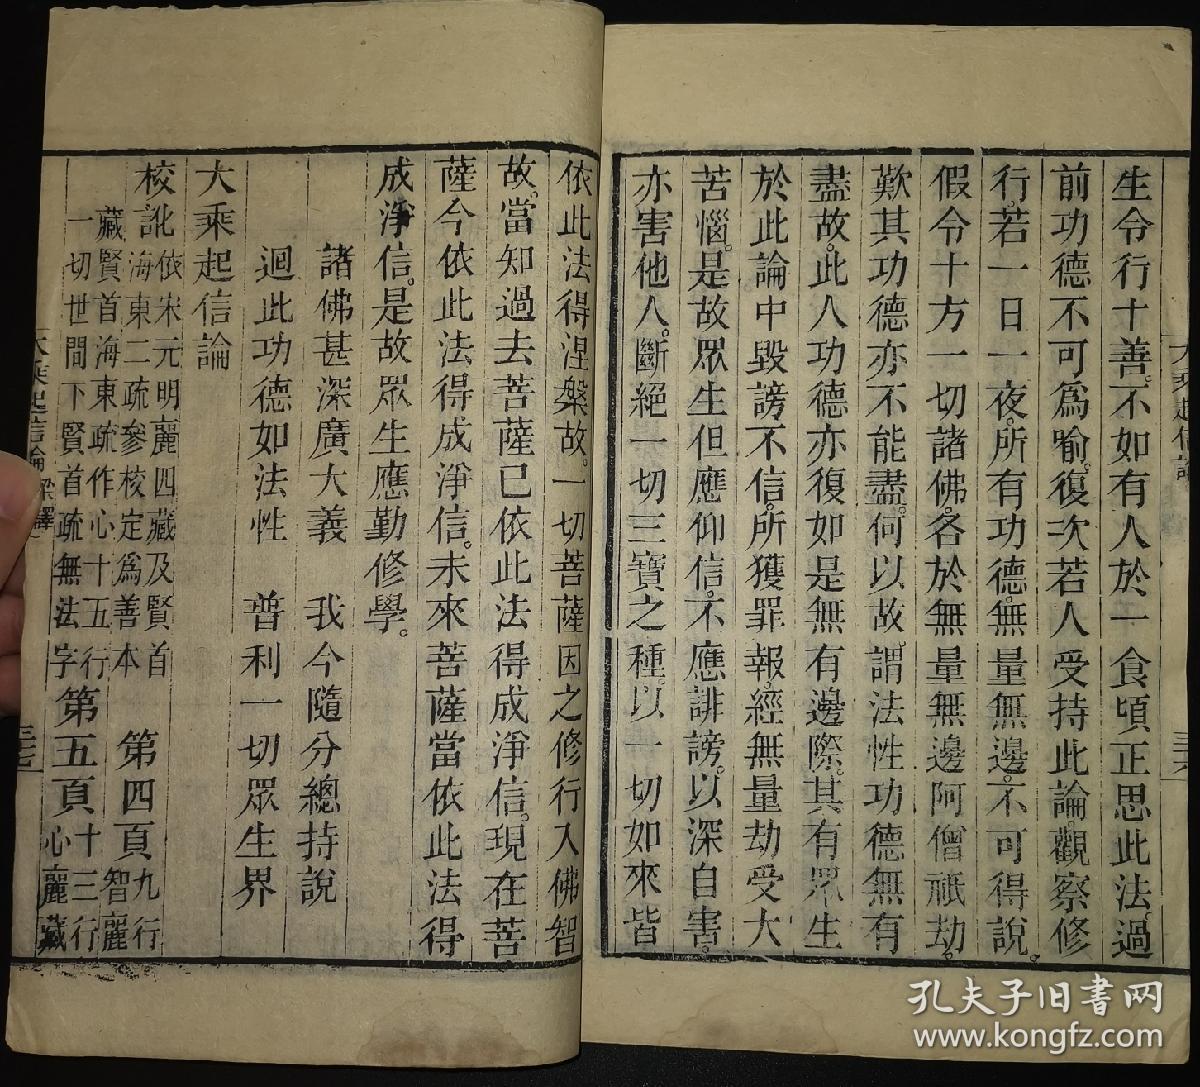 生令行十善。不如有人於一食頃正思此法。過
前功德不可爲喻。復次若人受持此論。觀察修
行。若一日一夜。所有功德。無量無邊。不可得說。
假令十方一切諸佛。各於無量無邊阿僧祇劫。
歎其功德亦不能盡。何以故。謂法性功德無有
盡故。此人功德亦復如是無有邊際。其有眾生
於此論中毀謗不信。所獲罪報。經無量劫受大
苦惱。是故眾生但應仰信。不應誹謗。以深自害。
亦害他人。斷絕一切三寶之種。以一切如來皆
依此法得涅槃故。一切菩薩因之修行入佛智
故。當知過去菩薩已依此法得成淨信。現在菩
薩今依此法得成淨信。未來菩薩當依此法得
成淨信。是故眾生應勤修學。
諸佛甚深廣大義　我今隨分總持說
迴此功德如法性　普利一切眾生界
大乘起信論
校訛
依宋元明麗四藏及賢首
海東二疏參校定爲善本
第四頁
九行
智麗
藏賢首海東疏作心
十五行
一切世間下賢首疏無法字
第五頁
十三行
心麗藏
大乘起信論
三六
大乘起信論
梁譯
三七
孔夫子旧書网
www.kongfz.com